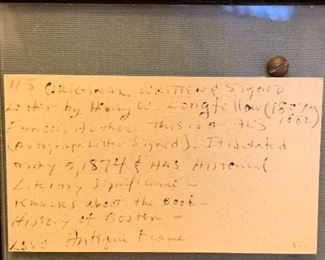 115 ORIGINAL WRITTEN & SIGNED
Letter by Henry W. Longfellow (1807-
Famous Author. This is an ALS
(Autograph Letter Signed). It is dated
5, 1874 & HAS Historical
Literary Significance -
remarks about the Book -
History of Boston -
Antique Frame